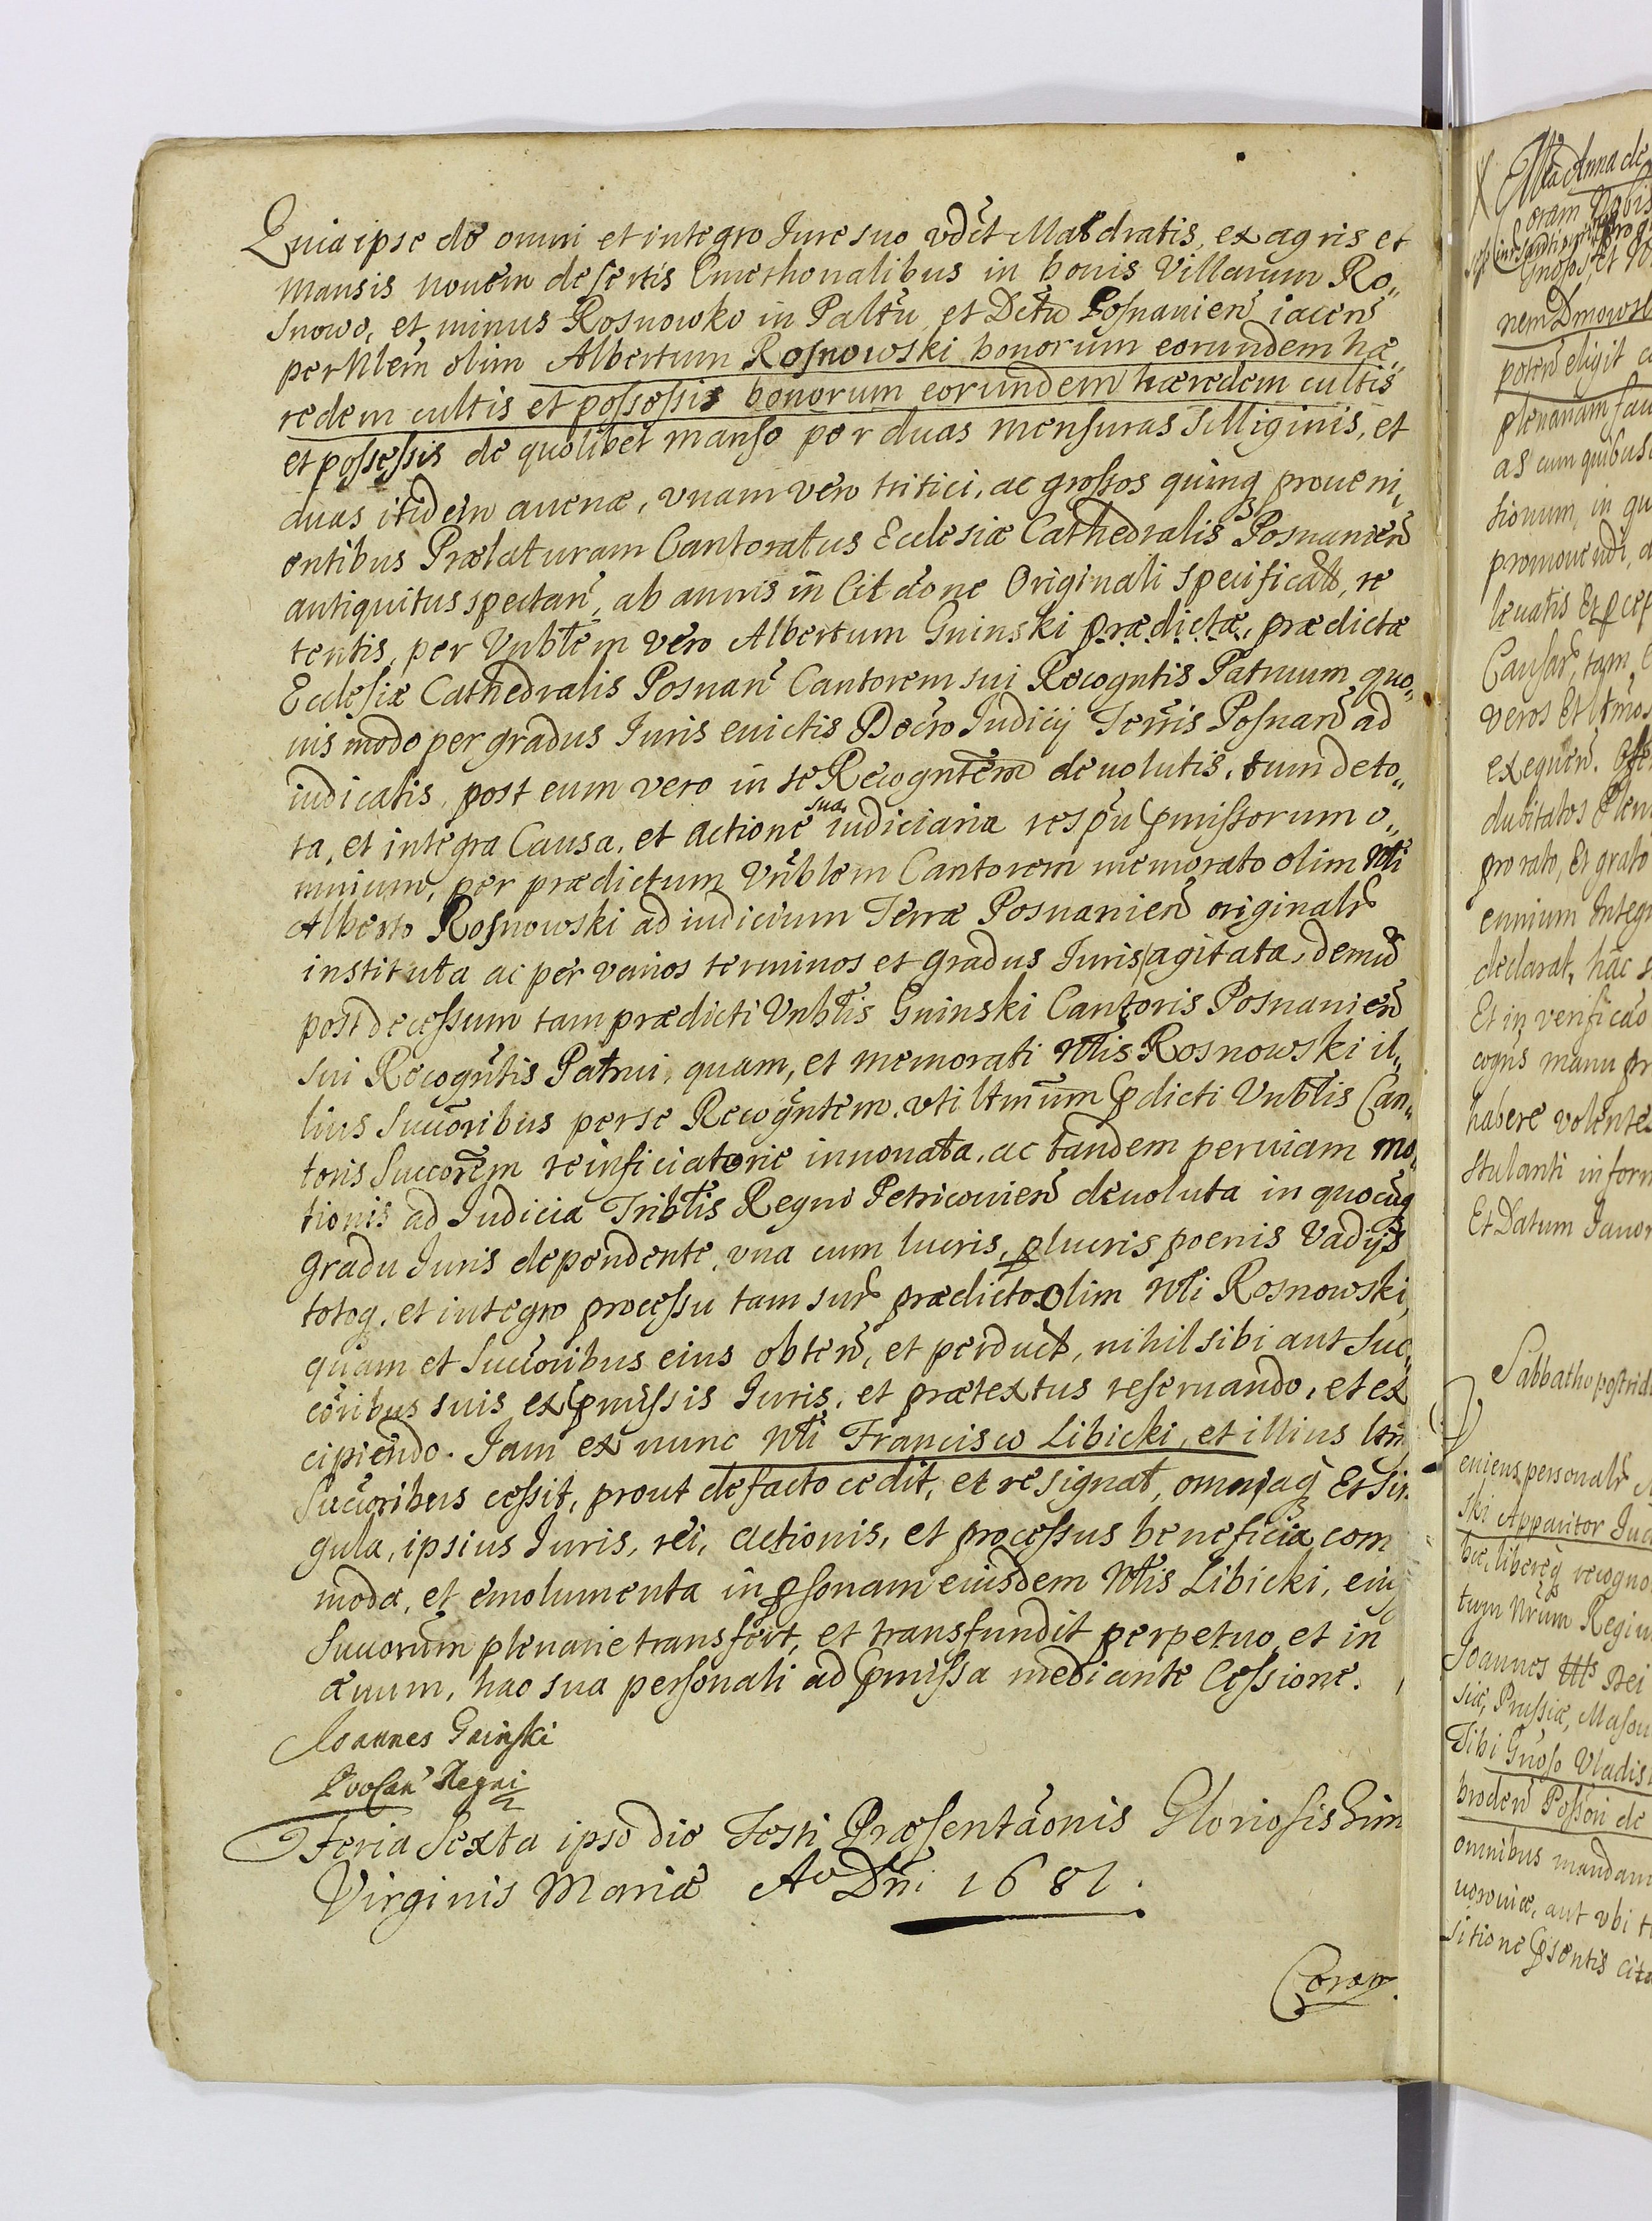 Quia ipse de omni et integro Jure suo vdēt Maldratis, ex agris et
mansis novem desertis Cmethonalibus in bonis Villarum Ro„
snowo, et minus Rosnowko in Paltū et Dctū Posnanieñ iaceñ
per Nlem̄ olim Albertum Rosnowski bonorum eorundem hæ„
redem cultis et possessis bonorum eorundem hæredem cultis
et possessis de quolibet manso per duas mensuras silliginis, et
duas itidem auenæ, vnam vero tritici, ac grossos quinq proueni„
entibus Prælaturam Cantoratus Ecclesiæ Cathedralis Posnanieñ
antiquitus spectañ, ab annis in Citāōne Originali specificatt, re
tentis, per Vnblem̄ vero Albertum Gninski prædictæ, prædictæ
Ecclesiæ Cathedralis Posnañ Cantorem sui Recogntis Patruum quo„
uis modo per gradus Juris euictis Decro Judicij Terris Posnañ ad
iudicatis, post eum vero in se Recogntēm deuolutis, tum de to„
ta, et integra Causa, et actione sua iudiciaria respū pmissorum o„
mnium, per prædictum Vnblem Cantorem memorato olim Nli
Alberto Rosnowski ad iudicium Terræ Posnanieñ originalr
instituta ac per varios terminos et gradus Juris agitata, demū
post decessum tam prædicti Vnblis Gninski Cantoris Posnanieñ
sui Recogntis Patrui, quam, et memorati Nlis Rosnowski il„
lius Succōribus per se Recogntem, vti ltm̄um pdicti Vnblis Can„
toris Succorēm reinficiatorie innouata, ac tandem per viam mo„
tionis ad Judicia Triblis Regni Petricouieñ deuoluta in quocūq
gradu Juris dependente, vna cum lucris, plucris poenis Vadijs
totoq, et integro processu tam supr prædicto olim Nli Rosnowski,
quam et Succōribus eius obteñ, et perduct, nihil sibi aut Suc„
cōribus suis ex pmissis Juris, et prætextus reseruando, et ex
cipiendo. Jam ex nunc Nli Francisco Libicki, et illius ltm̄
Succōribus cessit, prout de facto cedit, et resignat, omniaq et sin
gula, ipsius Juris, rei, actionis, et processus beneficia, com
moda, et emolumenta in psonam eiusdem Nlis Libicki, eiuq
Succorūm plenarie transfert, et transfundit perpetuo et in
æuum, hac sua personali ad pmissa mediante Cessione.
Joannes Gninski
ProCan Regni
Feria Sexta ipso die Festi Præsentāonis Gloriosissim
Virginis Mariæ Ao Dni 1681.
Coram
X Mta Anna de
nem Dmowsk
poteñ eligit
plenariam fau
as cum quibus
tionum, in qu
promouendi,
leuatis Et pcep
Causar, tam
veros Et ltmos
exequeñ.
dubitatos Plen
pro rato, Et grato
ennium Integr
declarat, hac s
Et in verificāō
cogns manu pr
habere volente
stulanti in form
Et Datum Jauor
Sabbatho postrid
eniens personalr
ski Apparitor Jud
hic, libereq recogno
tum Nrum Regiu
Joannes IIIs Dei
siæ, Prussiæ, Masou
Tibi Gnoso Vladis
brodeñ Possori de
omnibus mandam
uowiæ, aut vbi t
sitione psentis cita